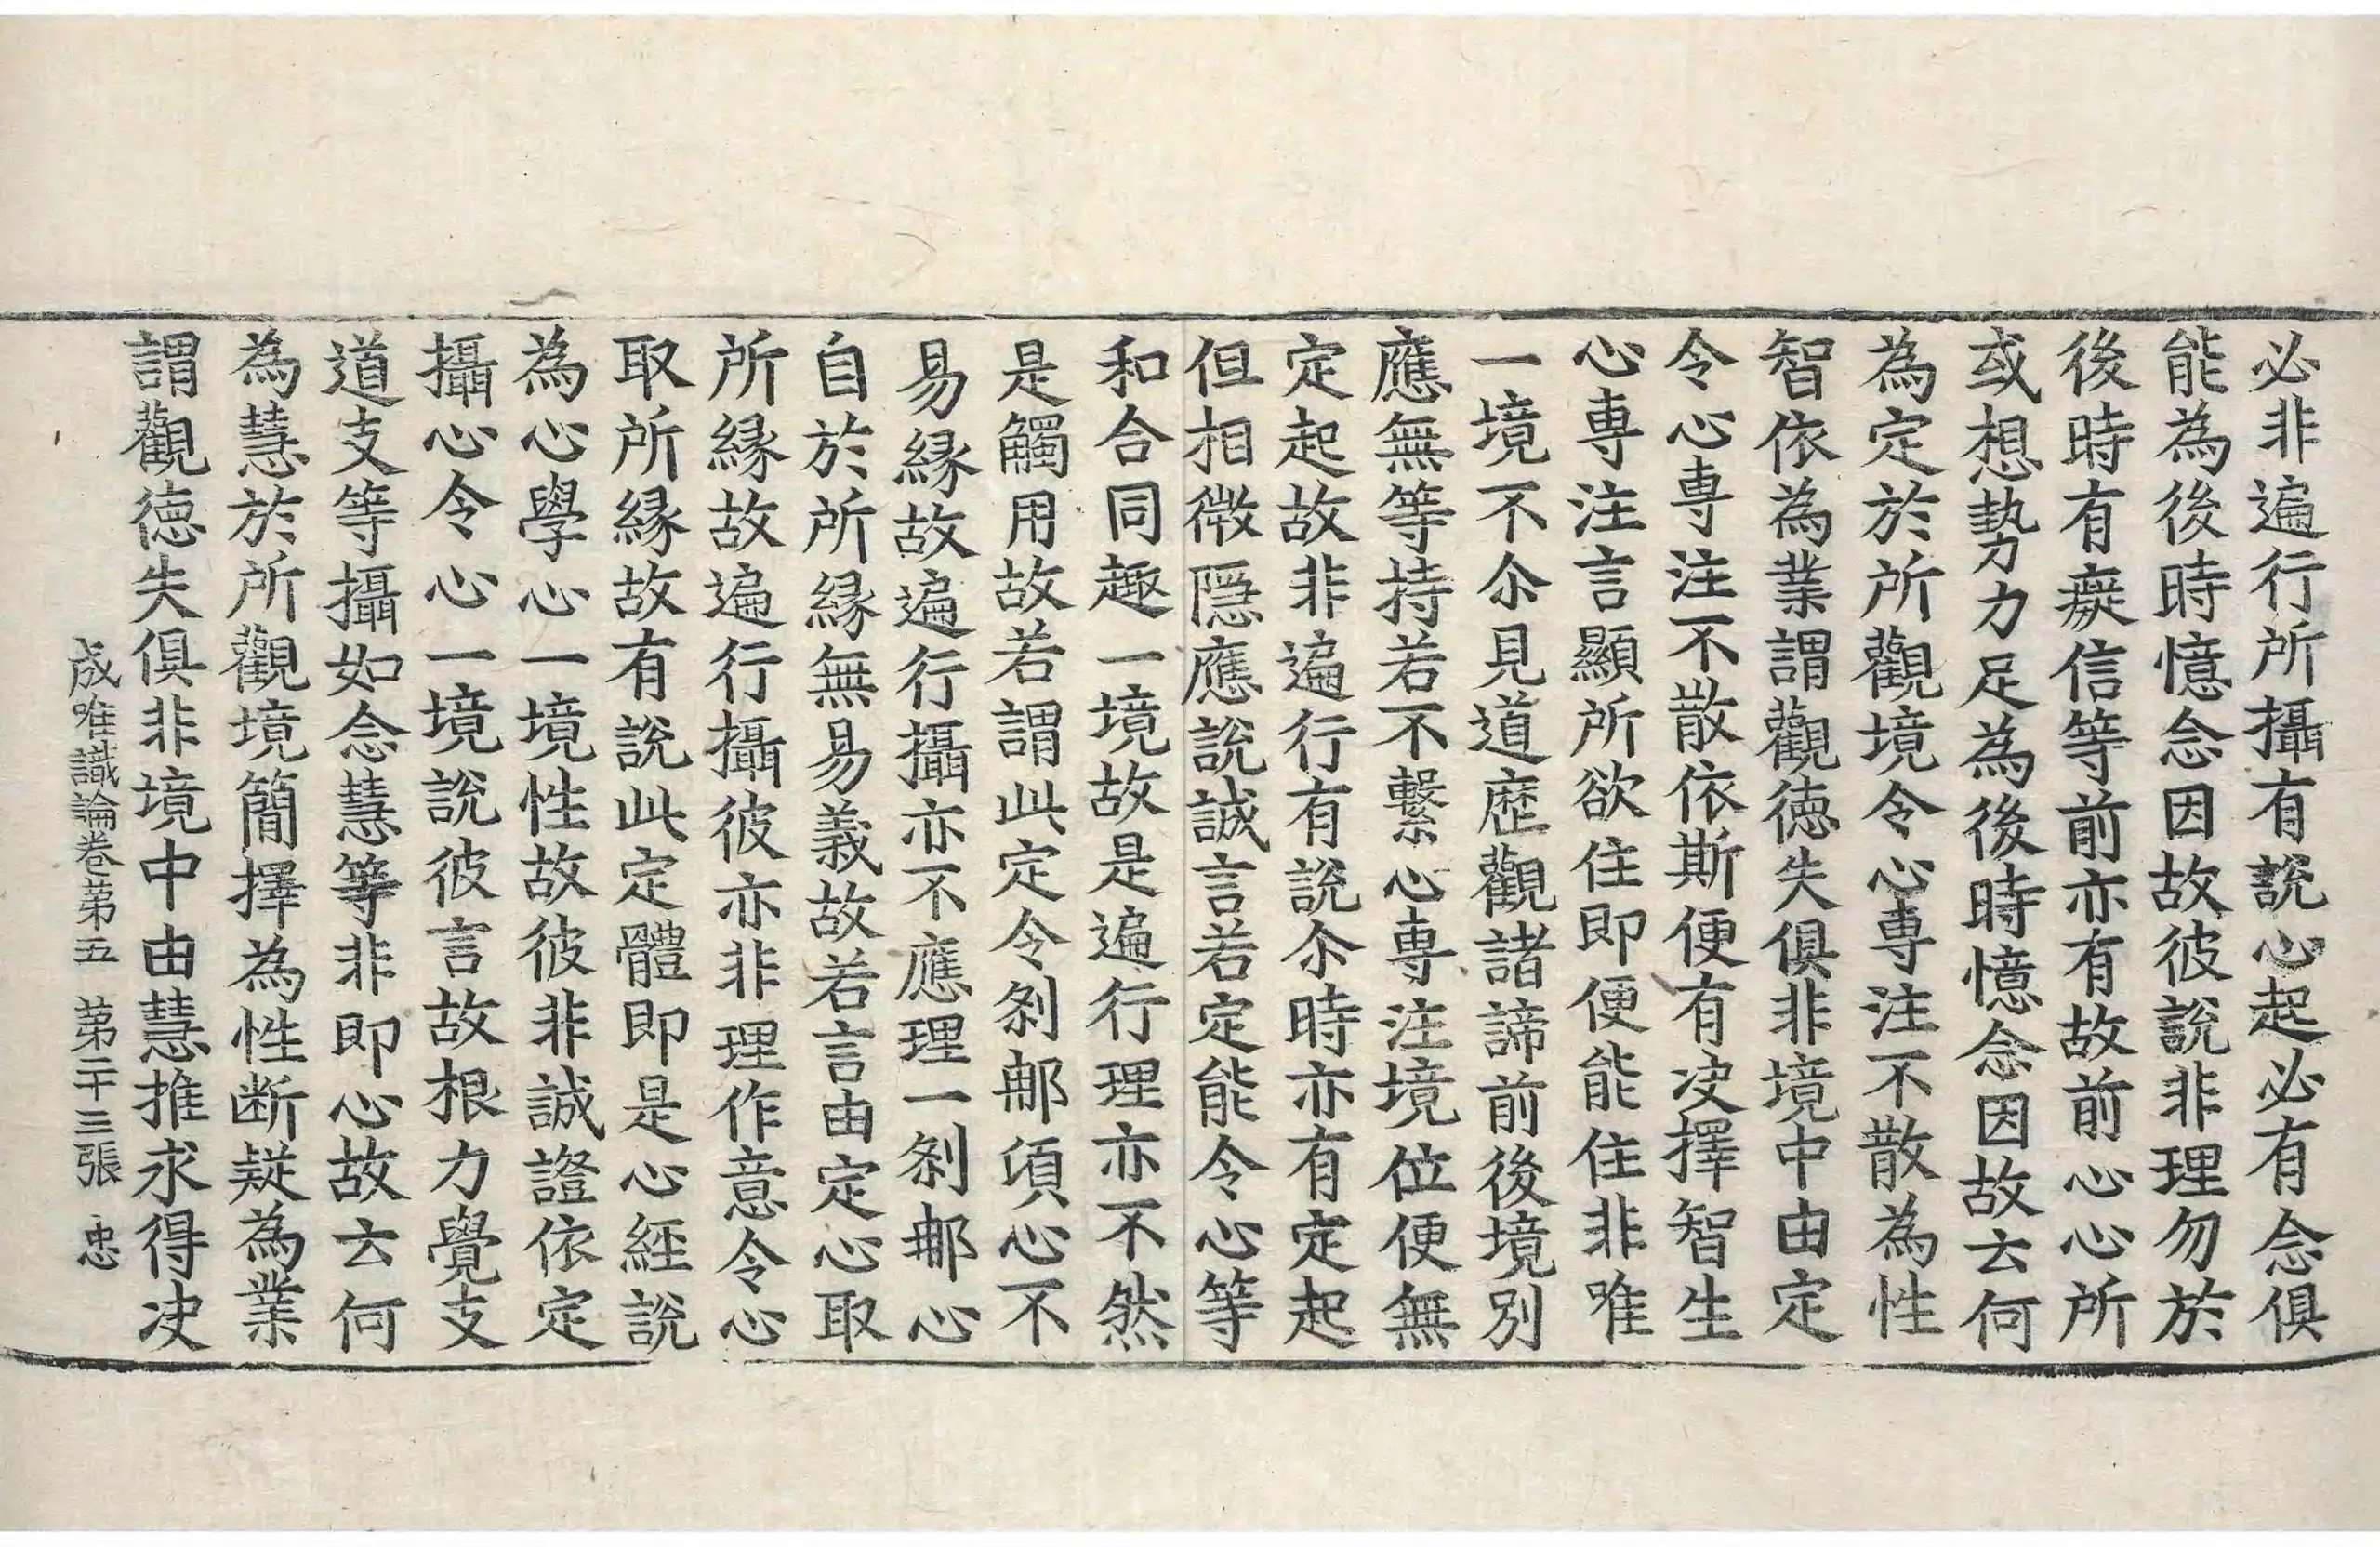 必非遍行所攝有說心起必有念俱
能為後時憶念因故彼說非理勿於
後時有癡信等前亦有故前心心所
或想勢力足為後時憶念因故云何
為定於所觀境令心專注不散為性
智依為業謂觀德失俱非境中由定
令心專注不散依斯便有决擇智生
心專注言顯所欲住即便能住非唯
一境不尒見道歷觀諸諦前後境別
應無等持若不繫心專注境位便無
定起故非遍行有說尒時亦有定起
但相微隱應說誠言若定能令心等
和合同趣一境故是遍行理亦不然
是觸用故若謂此定令剎那頃心不
易緣故遍行攝亦不應理一剎那心
自於所緣無易義故若言由定心取
所緣故遍行攝彼亦非理作意令心
取所緣故有說此定體即是心經說
為心學心一境性故彼非誠證依定
攝心令心一境說彼言故根力覺支
道支等攝如念慧等非即心故云何
為慧於所觀境簡擇為性断疑為業
謂觀德失俱非境中由慧推求得决
成唯識論卷第五 第二十三張 忠